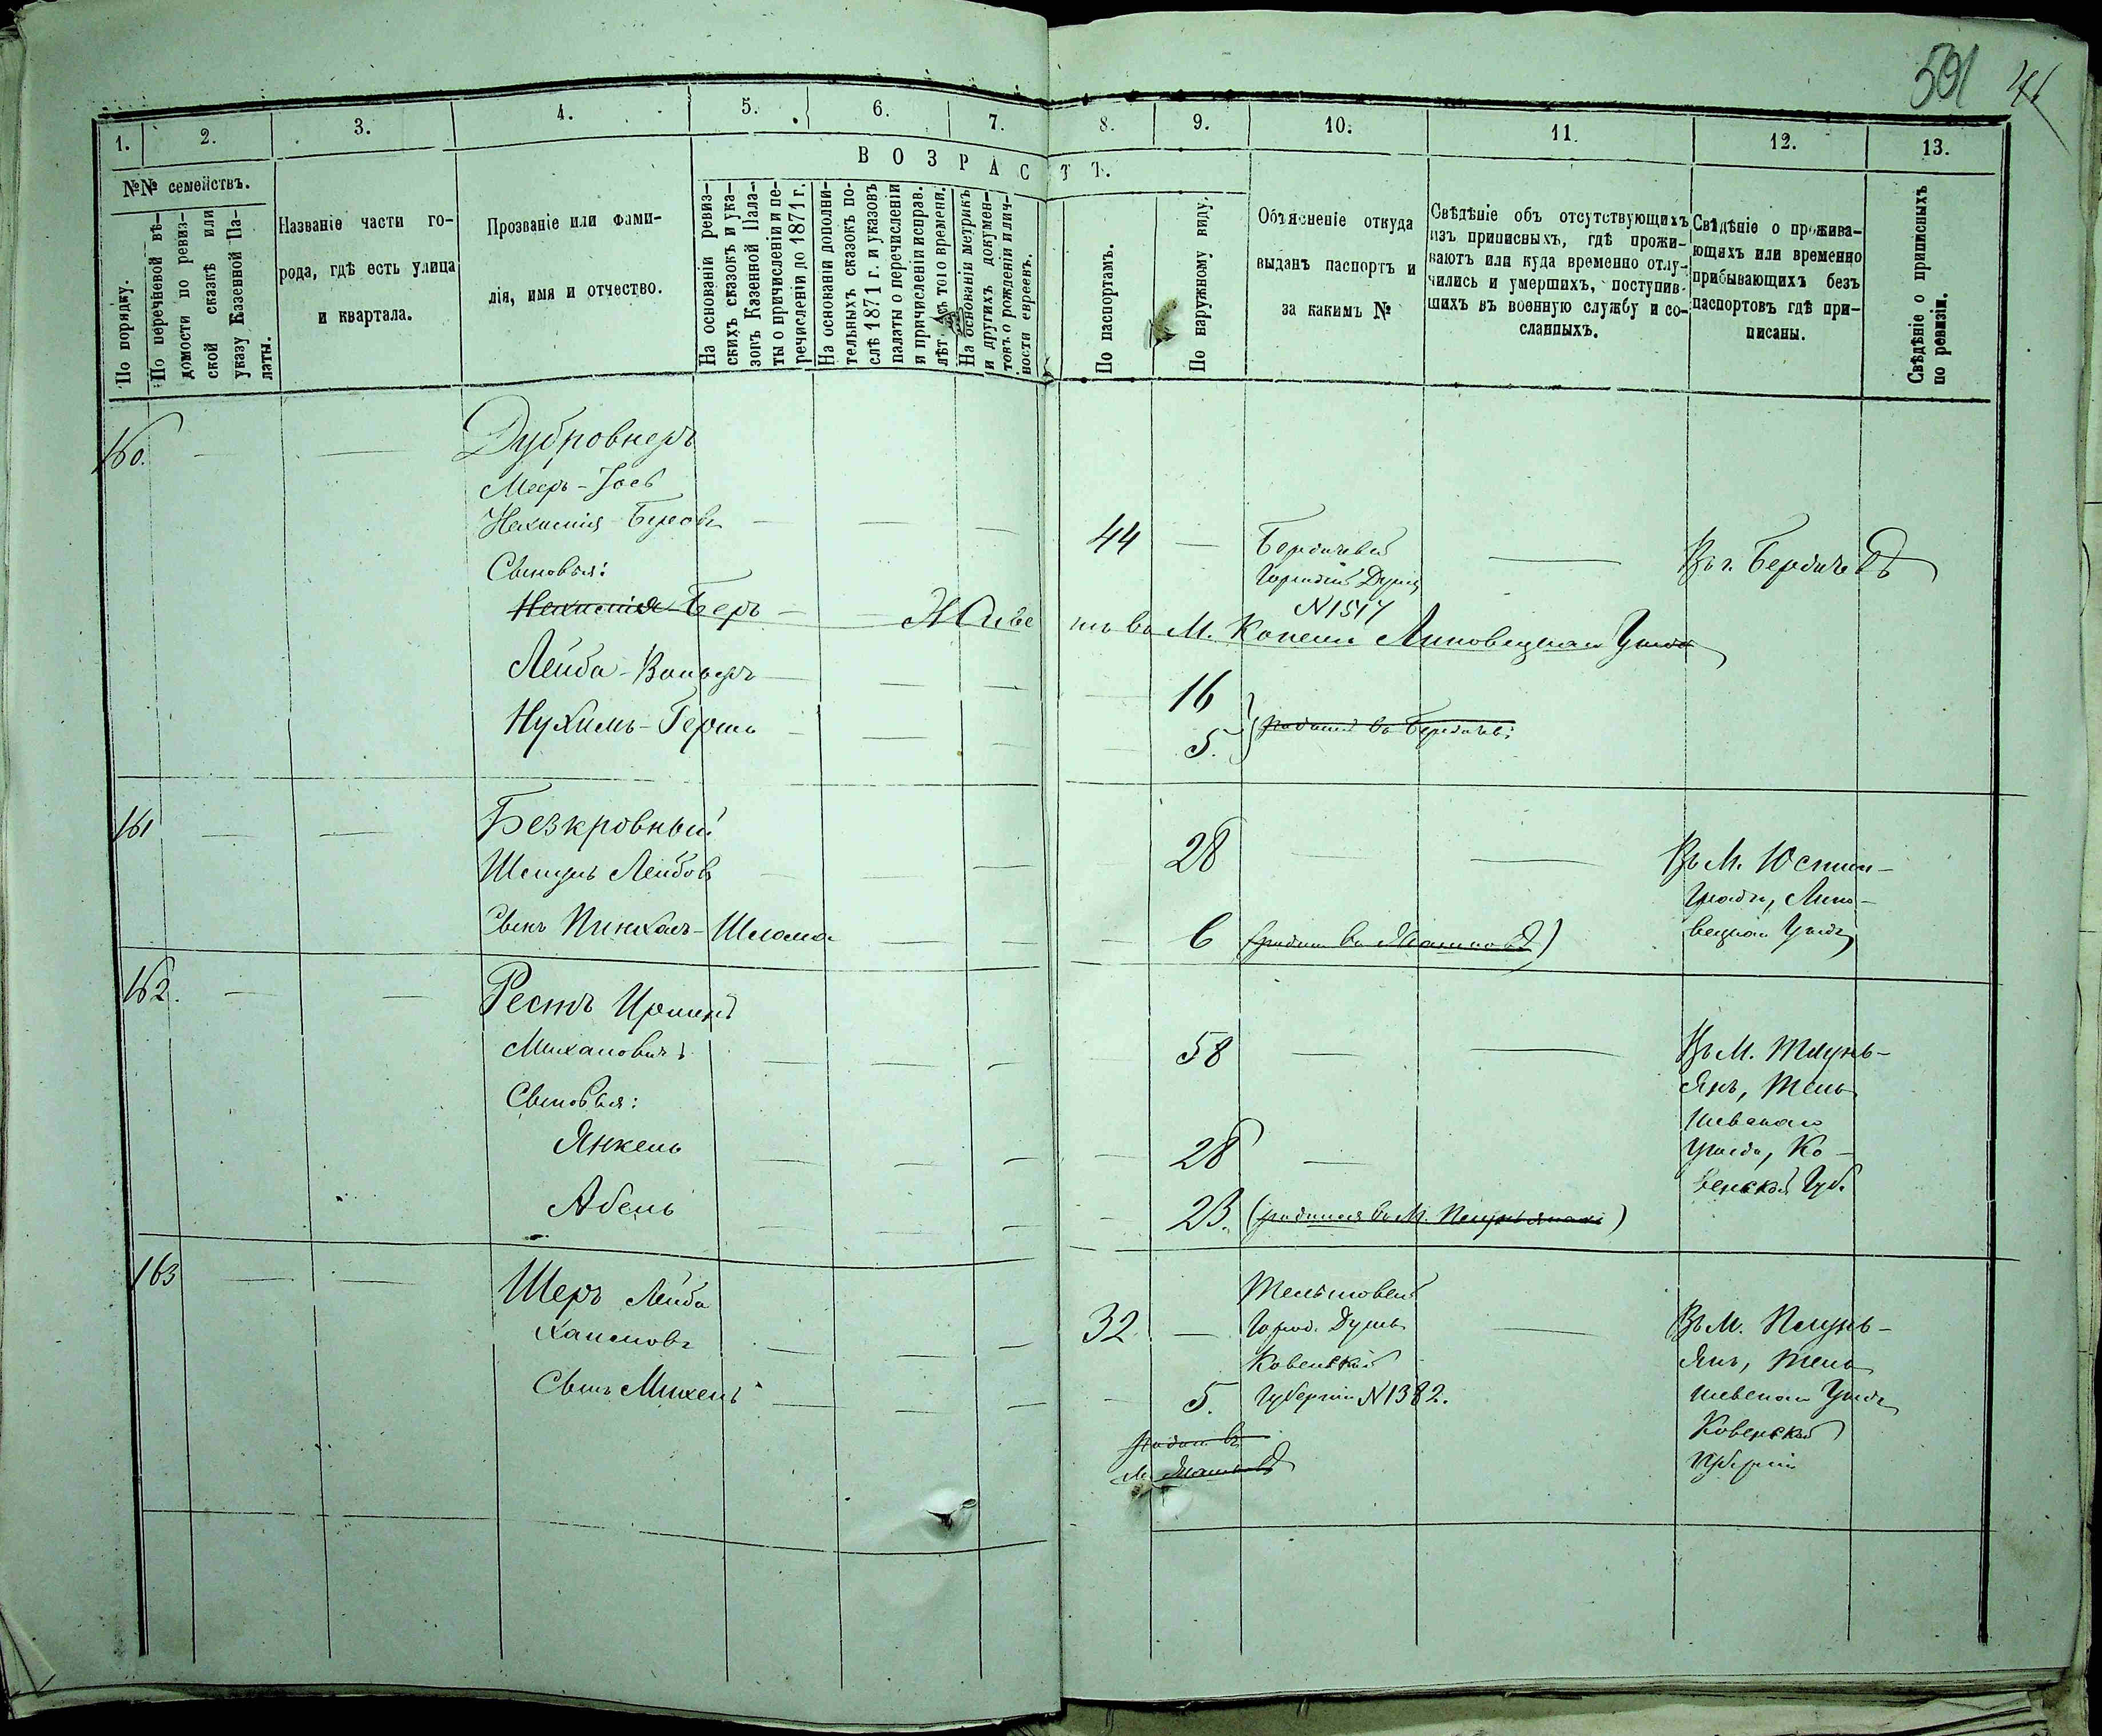 591
1. 2. 3. 4. 5. 6. 7. 8. 9. 10. 11. 12. 13.
№№ семействъ.
По порядку.
По перечневой вѣ-
домости по ревиз-
ской сказкѣ или
указу Казенной Па-
латы.
Названіе части го-
рода, гдѣ есть улица
и квартала.
Прозваніе или фами-
лія, имя и отчество.
ВОЗРАСТЪ.
На основаніи ревиз-
скихъ сказокъ и ука-
зовъ Казенной Пала-
ты о причисленіи и пе-
речисленіи до 1871 г.
На основаніи дополни-
тельныхъ сказокъ по-
слѣ 1871 г. и указовъ
палаты о перечисленіи
и причисленіи исправ.
лѣт. съ того времени.
На основаніи метрикъ
и другихъ докумен-
товъ о рожденіи и лич-
ности евреевъ.
По паспортамъ.
По наружному виду.
Объясненіе откуда
выданъ паспортъ и
за какимъ №
Свѣдѣніе объ отсутствующихъ
изъ приписныхъ, гдѣ прожи-
ваютъ или куда временно отлу-
чились и умершихъ, поступив-
шихъ въ военную службу и со-
сланныхъ.
Свѣдѣніе о прожива-
ющихъ или временно
прибывающихъ безъ
паспортовъ гдѣ при-
писаны.
Свѣдѣніе о приписныхъ
по ревизіи.
160.
Дубровнеръ
Мееръ-Іось
Нахимія Беровъ
44
Бердичевск
Городской Думы
N 1517
Въ г. Бердичевѣ
Сыновья:
Нахимія Беръ
Живетъ въ М. Копеи Липовецкаго Уѣзда
Лейба-Вольфъ
16
Нухимъ-Гершъ
5.
родился въ Бердичевѣ
161
Безкровный
Шмуль Лейбовъ
28
Въ М. Юстин-
града, Липо-
вецкаго Уѣзда
Сынъ Пинхасъ-Шлома
6
162.
Рестъ
Михановичъ
58
Въ М.
янъ, Тель-
шевскаго
Уѣзда, Ко-
венской Губ.
Сыновья:
Янкель
28
Абель
23.
(родился въ М.
163
Шеръ Лейба
Хаимовъ
32
Тельшовск
Город. Думы
Ковенской
Губерніи N 1382.
Въ М. Плунь-
янъ, Тель-
шевскаго Уѣзда
Ковенской
Губерніи
Сынъ Михель
5.
родил. въ
М.